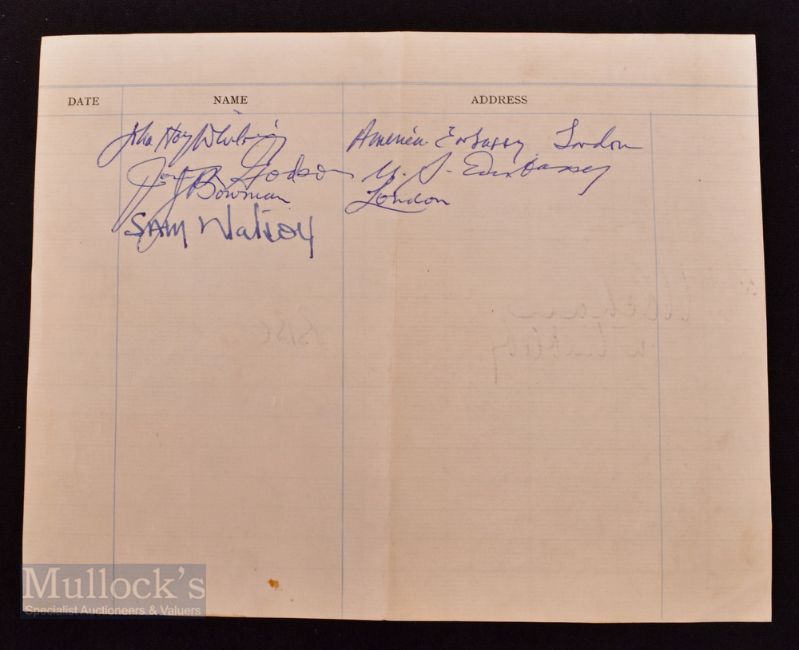 DATE NAME ADDRESS
John Hay Whitney American Embassy London
Joseph Godson U.S. Embassy
J Bowman London
SAM Watson
Mullock's
Specialist Auctioneers & Valuers